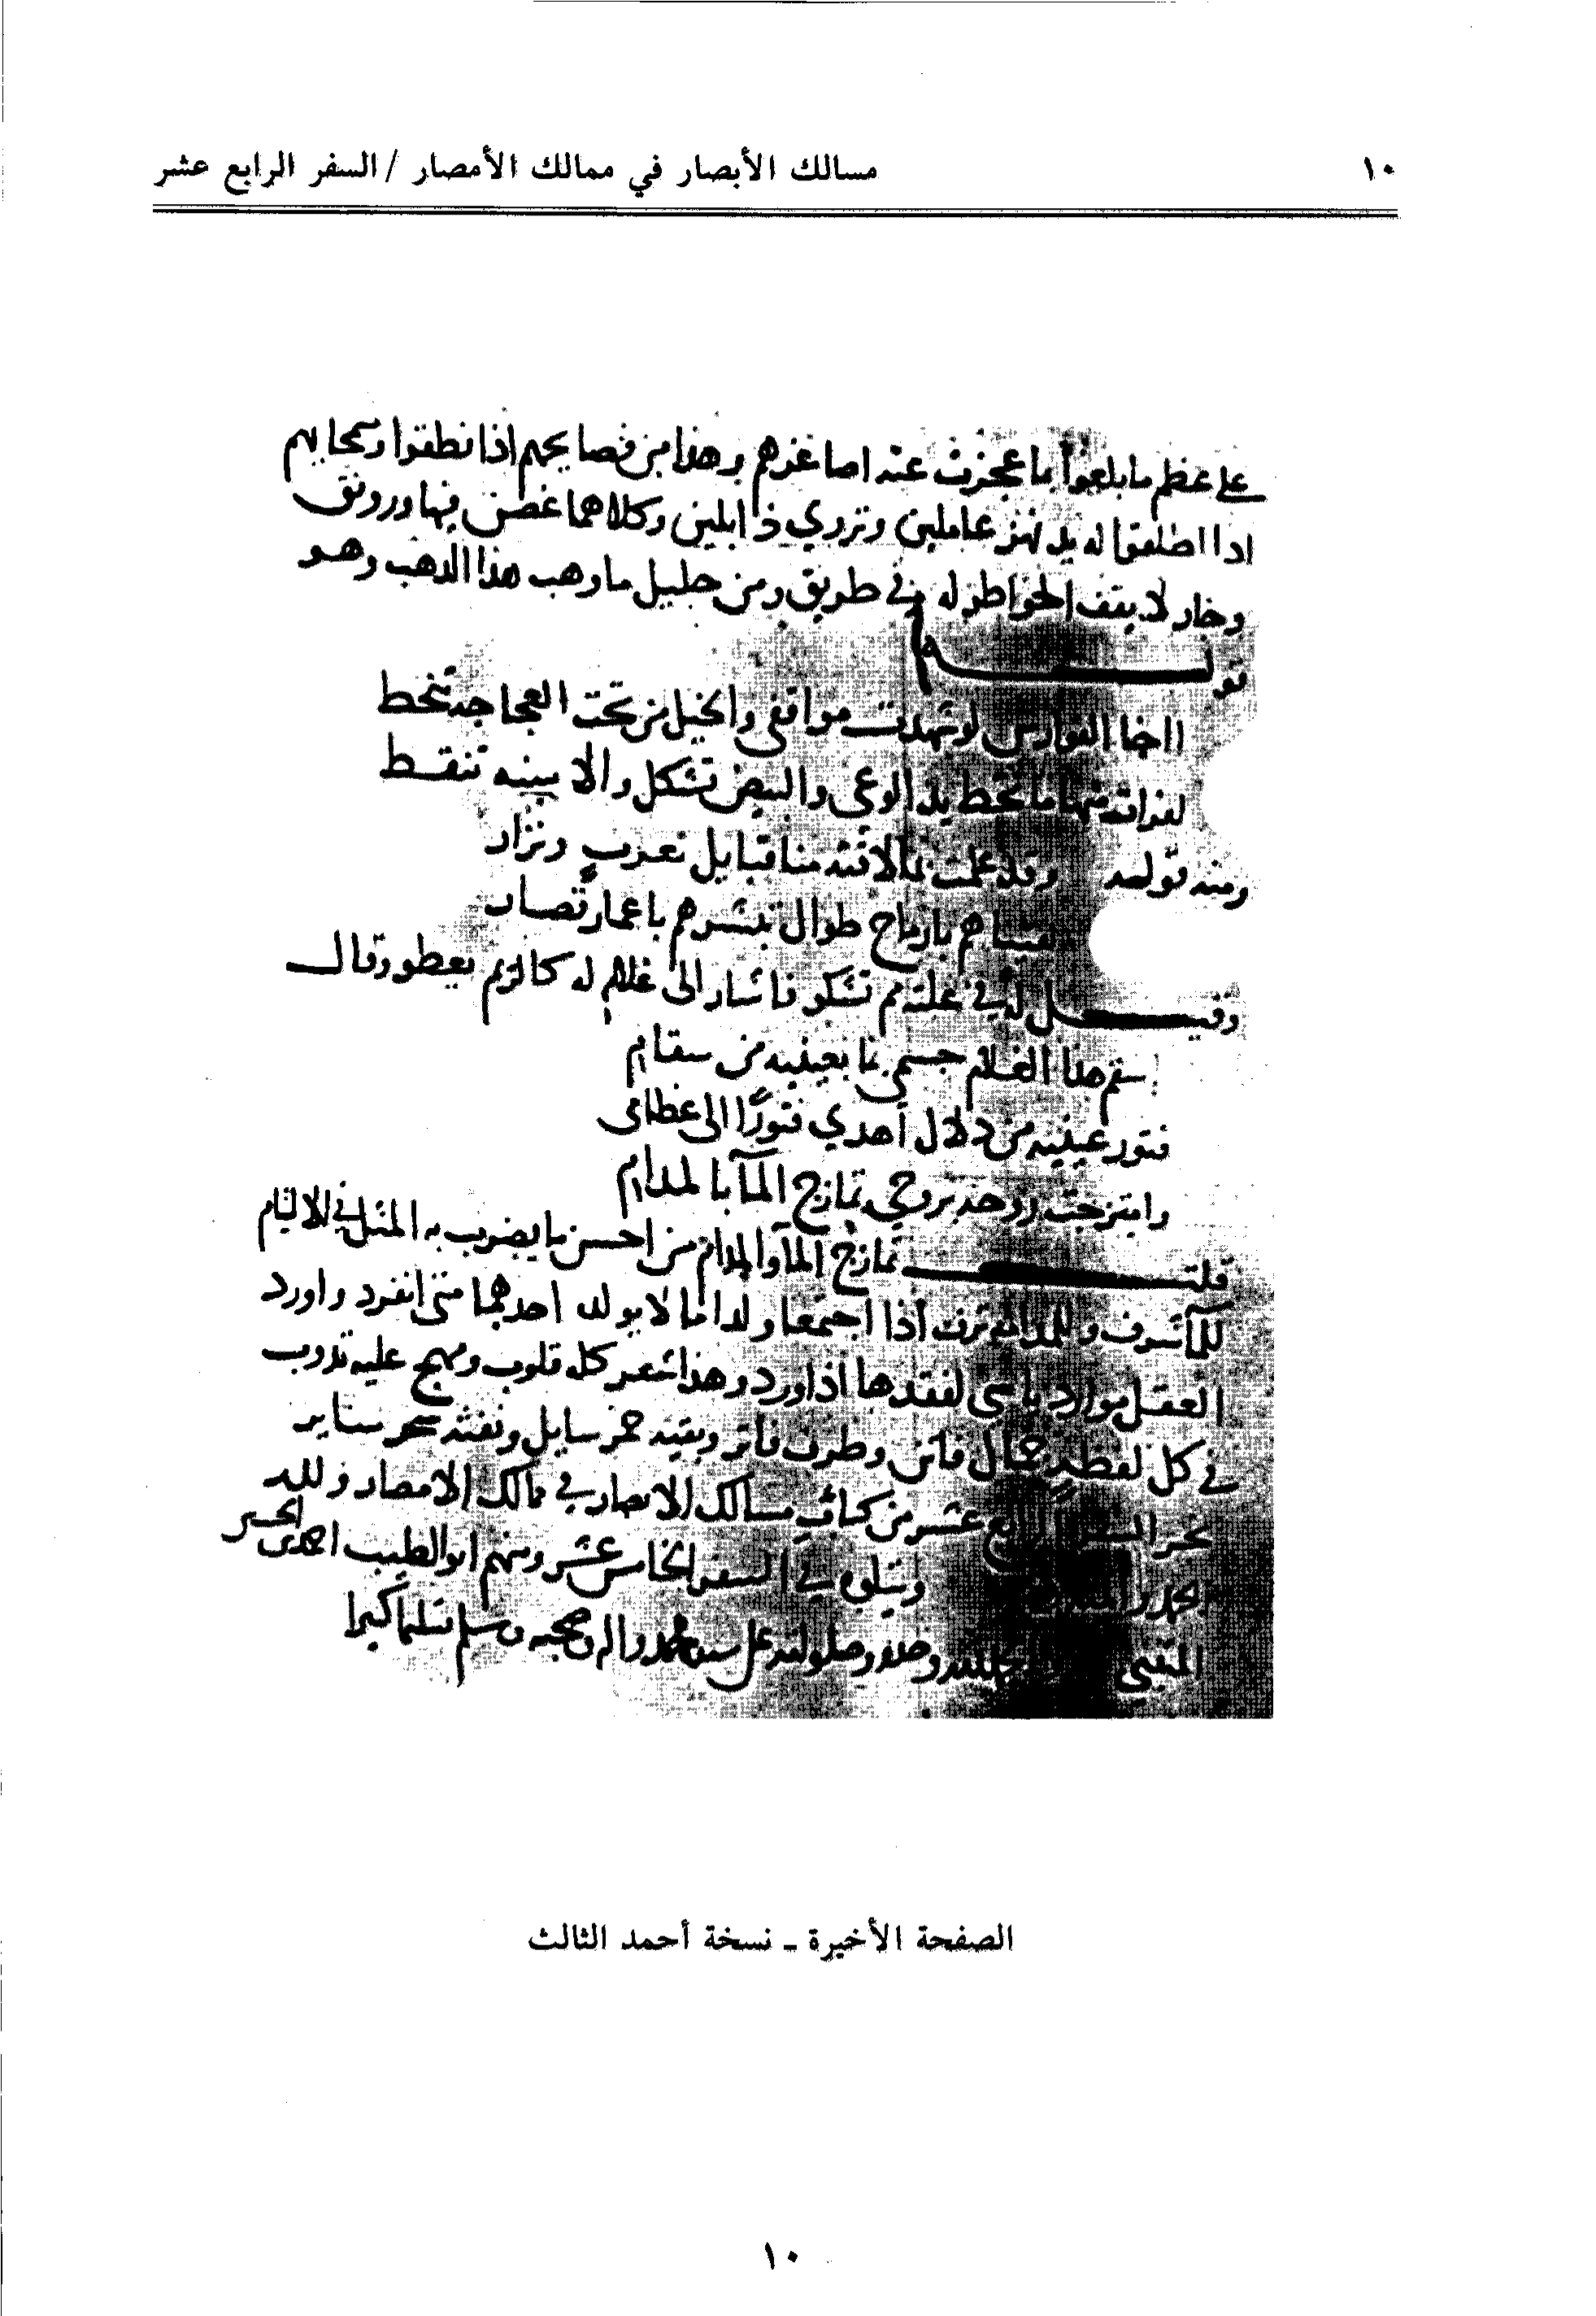 ١٠
مسالك الأبصار في ممالك الأمصار / السفر الرابع عشر
على عظم ما بلغوا ما عجزت عنه اصاغرهم وهذا من فصايحهم اذا نطقوا وسحايبهم
اذا اطلقوا له يد تهز عاملين وتروي ذابلين وكلاهما غصن فيها ورونق
لا يقف الخواطر له في طريق ومن جليل ما وهب هذا الذهب وهو
قوله
ااخا الفوارس لو شهدت مواقفي والخيل من تحت العجاجة تنحط
لقرات منها ما تخط يد الوغى والبيض تشكل والاسنه تنقط
ومنه قوله وقد علمت بما لاقته منا قبايل يعرب ونزار
لقيناهم بارماح طوال تبشرهم باعمار قصار
وقيل له في علته مم تشكو فاشار الى غلام له كالريم يعطو وقال
سقم هذا الغلام جسمي بما بعينيه من سقام
فتور عينيه من دلال أهدي فتورًا الى عظامي
وامتزجت روحه بروحي تمازج المآ بالمدام
قلت تمازج المآ والمدام من احسن ما يضرب به المثل في الالتيام
للمآ شرف وللمدام ترف اذا اجتمعا ولدا ما لا يولد احدهما متى انفرد واورد
العقل موارد ياسى لفقدها اذا ورد وهذا شعر كل قلوب ومهج عليه تذوب
في كل لفظة جمال فاتن وطرف فاتر وبقية خمر سايل ونفثه سحر ساير
نجز السفر الرابع عشر من كتاب مسالك الابصار في ممالك الامصار ولله
الحمد والمنة ويتلوه في السفر الخامس عشر ومنهم ابو الطيب احمد بن الحسين
المتنبي والحمد لله وحده وصلواته على سيدنا محمد واله وصحبه وسلم تسليما كثيرا
الصفحة الأخيرة ـ نسخة أحمد الثالث
١٠